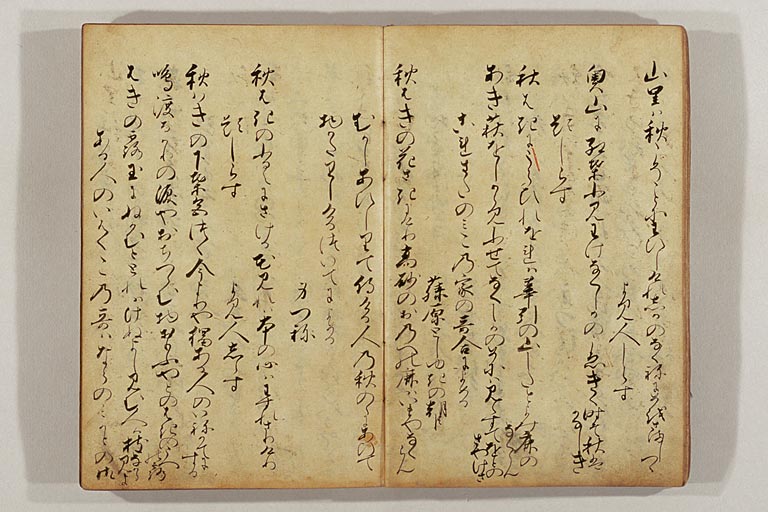 山里は秋こそことにわひしけれ鹿のなくねにめをさましつゝ
よみ人しらす
奥山に紅葉ふみわけなくしかのこゑきく時そ秋はかなしき
題しらす
秋はきにうらひれをれは葦引の山したとよみ鹿のなくらん
あき萩をしからみふせてなくしかのめには見えすておとのさやけさ
これさたのみこの家の哥合によめる
藤原としゆきの朝臣
秋はきの花さきにけり高砂のおのへの鹿はいまやなくらん
むかしあひしりて侍ける人の秋のゝにあひて
物かたりしけるついてによめる
みつね
秋はきのふるえにさける花見れは本の心はわすれさりけり
題しらす
よみ人しらす
秋はきの下葉色つく今よりや独ある人のいねかてにする
鳴渡るかりの涙やおちつらむ物おもふやとのはきのうへの露
はきの露玉にぬかむととれはけぬよし見む人は枝なから見よ
ある人のいはくこの哥はならのみかとの御